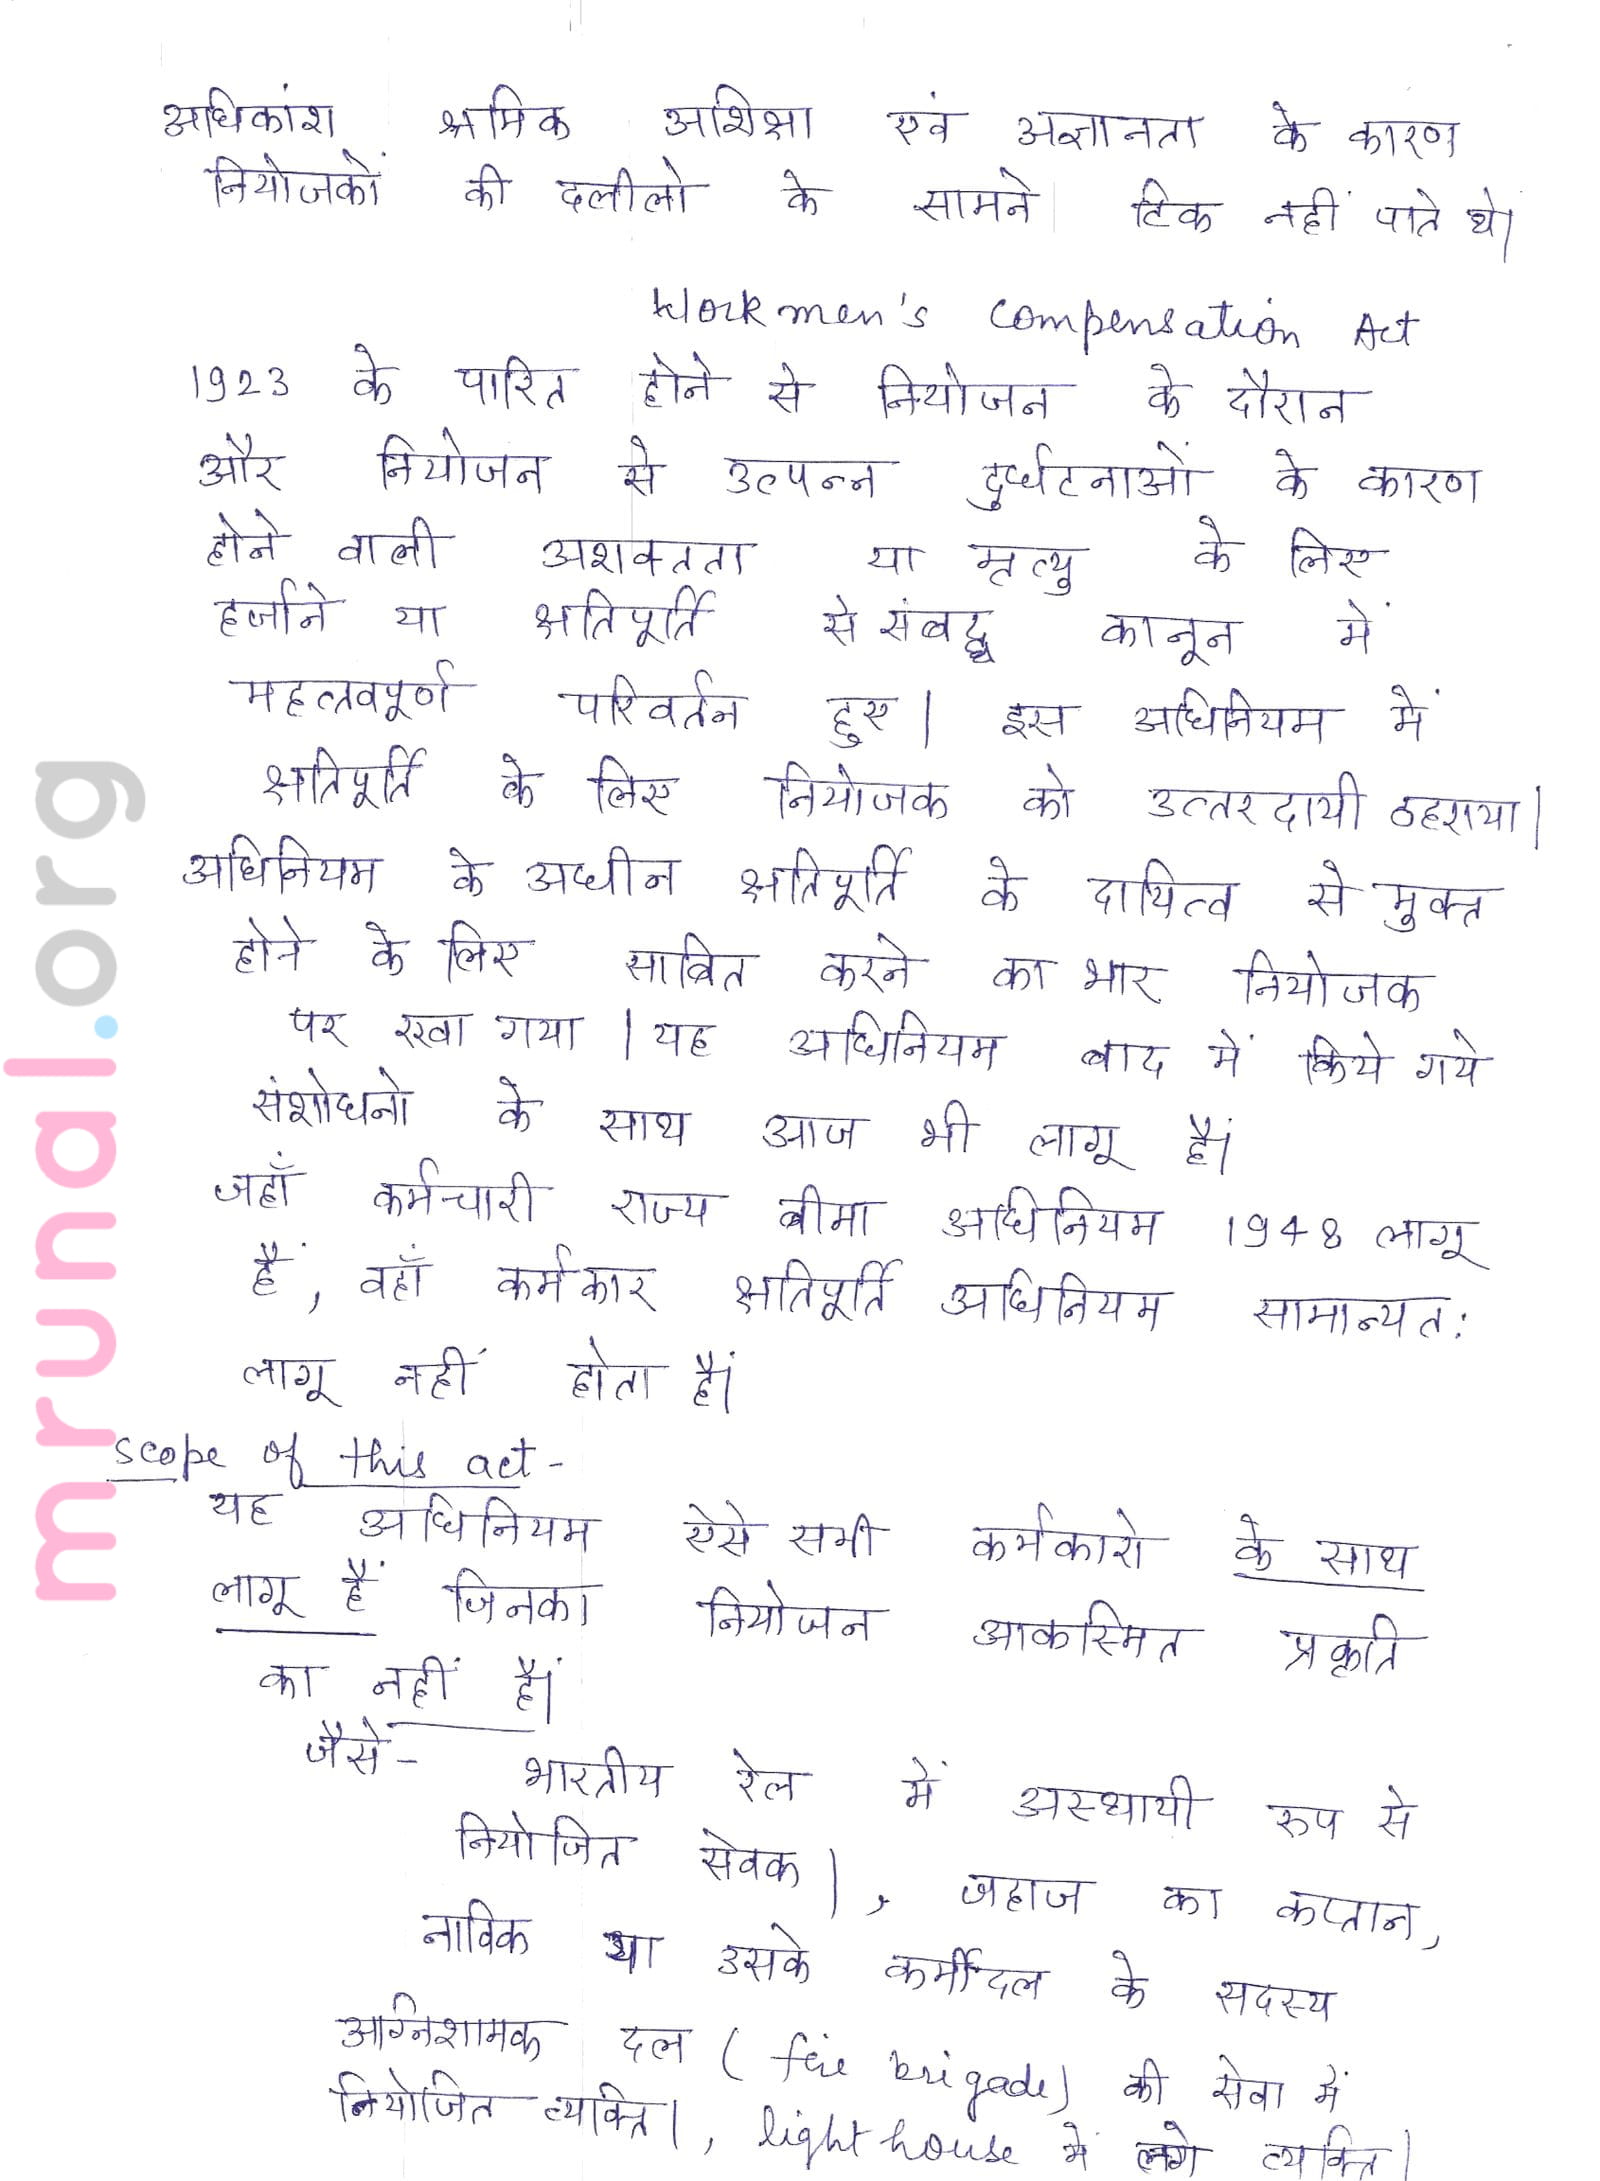 अधिकांश श्रमिक अशिक्षा एवं अज्ञानता के कारण
नियोजकों की दलीलो के सामने टिक नहीं पाते थे।
Workmen's Compensation Act
1923 के पारित होने से नियोजन के दौरान
और नियोजन से उत्पन्न दुर्घटनाओं के कारण
होने वाली अशक्तता या मृत्यु के लिए
हर्जाने या क्षतिपूर्ति से संबद्ध कानून में
महत्वपूर्ण परिवर्तन हुए। इस अधिनियम में
क्षतिपूर्ति के लिए नियोजक को उत्तरदायी ठहराया।
अधिनियम के अधीन क्षतिपूर्ति के दायित्व से मुक्त
होने के लिए साबित करने का भार नियोजक
पर रखा गया। यह अधिनियम बाद में किये गये
संशोधनो के साथ आज भी लागू हैं।
जहाँ कर्मचारी राज्य बीमा अधिनियम 1948 लागू
हैं, वहाँ कर्मकार क्षतिपूर्ति अधिनियम सामान्यत:
लागू नहीं होता हैं।
scope of this act -
यह अधिनियम ऐसे सभी कर्मकारो के साथ
लागू हैं जिनका नियोजन आकस्मित प्रकृति
का नहीं हैं।
जैसे - भारतीय रेल में अस्थायी रूप से
नियोजित सेवक।, जहाज का कप्तान,
नाविक या उसके कर्मीदल के सदस्य
अग्निशामक दल (fire brigade) की सेवा में
नियोजित व्यक्ति।, light house में लगे व्यक्ति।
mrunal.org